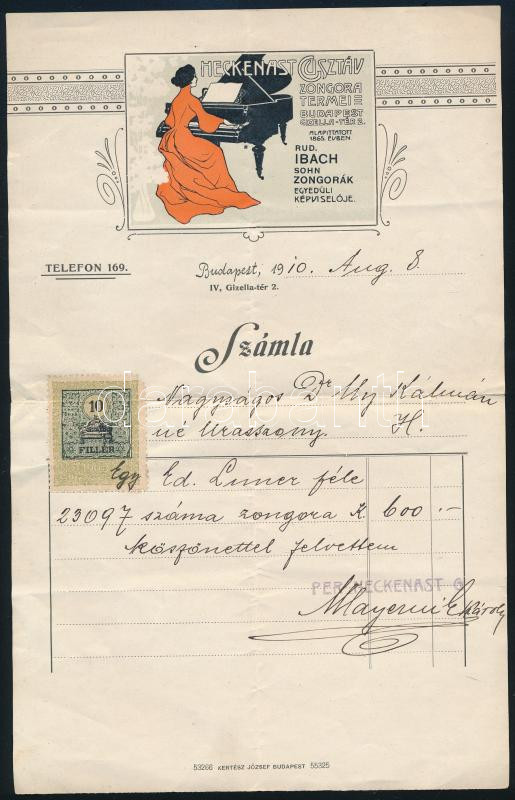 HECKENAST GUSZTÁV
ZONGORA
TERMEI
BUDAPEST
GIZELLA-TÉR 2.
ALAPITTATOTT
1865. ÉVBEN.
RUD.
IBACH
SOHN
ZONGORÁK
EGYEDÜLI
KÉPVISELŐJE.
TELEFON 169.
Budapest, 1910. Aug. 8.
IV, Gizella-tér 2.
Számla
Nagyságos Dr Kálmán
né Urasszony. H.
10
FILLÉR
Egy Ed. féle
23097 száma zongora K 600.-
köszönettel felvettem
PER HECKENAST G
Károly
53266 KERTÉSZ JÓZSEF BUDAPEST 55325